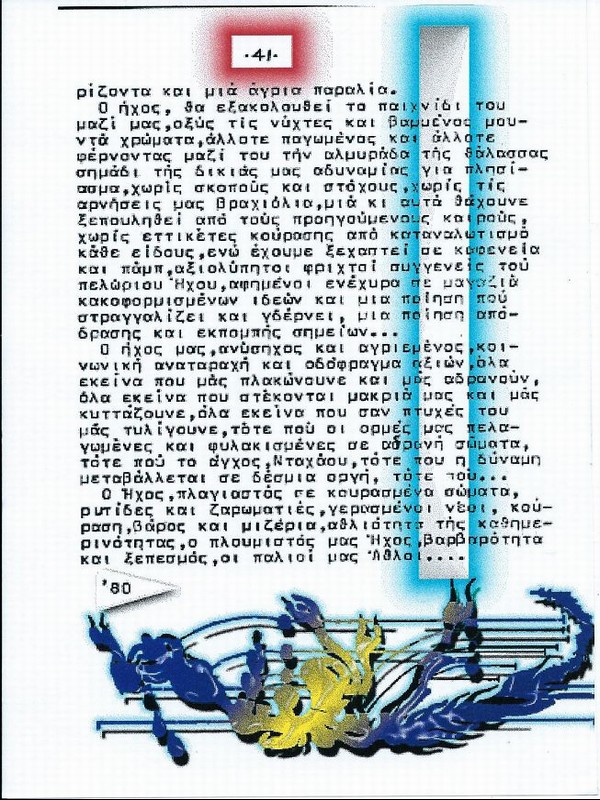 ·41·
ρίζοντα και μιά άγρια παραλία.
Ο ήχος, θα εξακολουθεί το παιχνίδι του
μαζί μας,οξύς τίς νύχτες και βαμμένος μου-
ντά χρώματα,άλλοτε παγωμένος και άλλοτε
φέρνοντας μαζί του τήν αλμυράδα τής θάλασσας
σημάδι τής δικιάς μας αδυναμίας για πλησί-
ασμα,χωρίς σκοπούς και στόχους,χωρίς τίς
αρνήσεις μας βραχιόλια,μιά κι αυτά θάχουνε
ξεπουληθεί από τούς προηγούμενους καιρούς,
χωρίς εττικέτες κούρασης από καταναλωτισμό
κάθε είδους,ενώ έχουμε ξεχαστεί σε καφενεία
και πάμπ,αξιολύπητοι φριχτοί συγγενείς τού
πελώριου Ήχου,αφημένοι ενέχυρα σε μαγαζιά
κακοφορμισμένων ιδεών και μια ποίηση πού
στραγγαλίζει και γδέρνει, μια ποίηση από-
δρασης και εκπομπής σημείων...
Ο ήχος μας,ανύσηχος και αγριεμένος,κοι-
νωνική αναταραχή και οδόφραγμα αξιών,όλα
εκείνα που μάς πλακώνουνε και μάς αδρανούν,
όλα εκείνα που στέκονται μακριά μας και μάς
κυττάζουνε,όλα εκείνα που σαν πτυχές του
μάς τυλίγουνε,τότε πού οι ορμές μας πελα-
γωμένες και φυλακισμένες σε αδρανή σώματα,
τότε πού το άγχος,Νταχάου,τότε που η δύναμη
μεταβάλλεται σε δέσμια οργή, τότε πού...
Ο Ήχος,πλαγιαστός σε κουρασμένα σώματα,
ρυτίδες και ζαρωματιές,γερασμένοι νέοι, κού-
ραση,βάρος και μιζέρια,αθλιότητα τής καθημε-
ρινότητας,ο πλουμιστός μας Ήχος,βαρβαρότητα
και ξεπεσμός,οι παλιοί μας Άθλοι....
'80